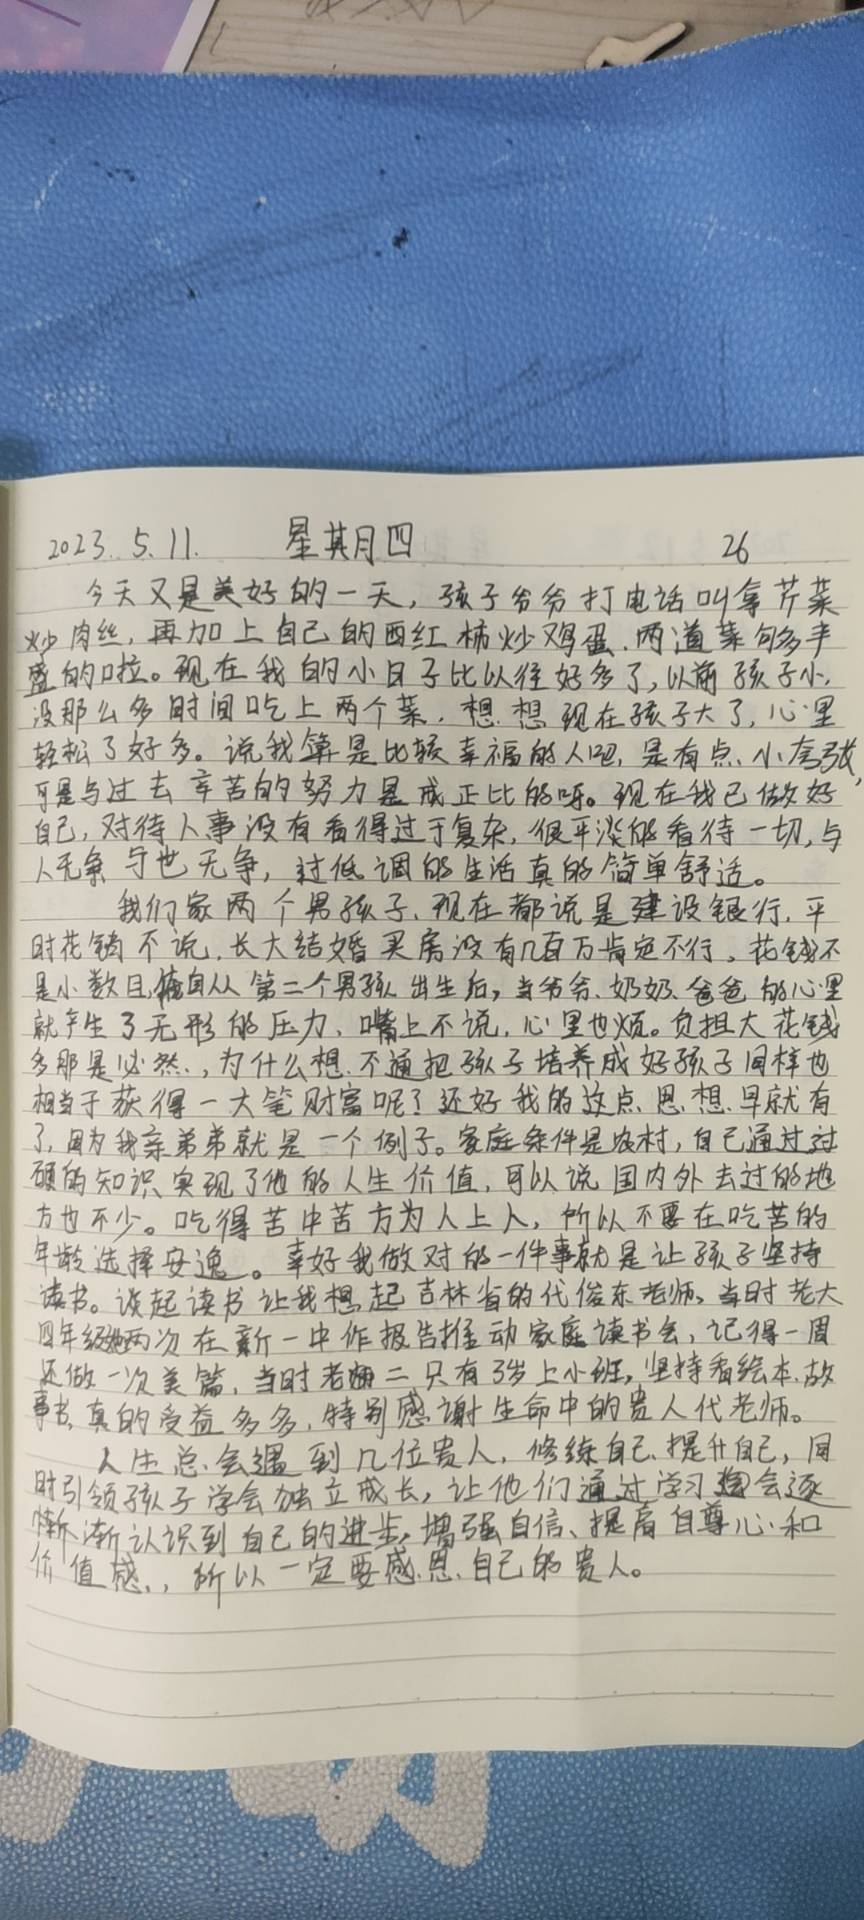 2023.5.11. 星其月四 26
今天又是美好的一天，孩子爷爷打电话叫拿芹菜
炒肉丝，再加上自己的西红柿炒鸡蛋，两道菜够多丰
盛的啦。现在我的小日子比以往好多了，以前孩子小，
没那么多时间吃上两个菜，想想现在孩子大了，心里
轻松了好多。说我算是比较幸福的人吧，是有点小夸张，
可是与过去辛苦的努力是成正比的呀。现在我已做好
自己，对待人事没有看得过于复杂，很平淡的看待一切，与
人无争与世无争，过低调的生活真的简单舒适。
我们家两个男孩子，现在都说是建设银行，平
时花销不说，长大结婚买房没有几百万肯定不行。花钱不
是小数目，自从第二个男孩出生后，当爷爷、奶奶、爸爸的心里
就产生了无形的压力，嘴上不说，心里也烦。负担大花钱
多那是必然，为什么想不通把孩子培养成好孩子同样也
相当于获得一大笔财富呢？还好我的这点思想早就有
了，因为我亲弟弟就是一个例子。家庭条件是农村，自己通过过
硬的知识实现了他的人生价值，可以说国内外去过的地
方也不少。吃得苦中苦方为人上人，所以不要在吃苦的
年龄选择安逸。幸好我做对的一件事就是让孩子坚持
读书。谈起读书让我想起吉林省的代俊东老师，当时老大
四年级两次在新一中作报告推动家庭读书会，记得一周
还做一次美篇，当时老二只有3岁上小班，坚持看绘本、故
事书，真的受益多多，特别感谢生命中的贵人代老师。
人生总会遇到几位贵人，修练自己、提升自己，同
时引领孩子学会独立成长，让他们通过学习会逐
渐渐认识到自己的进步，增强自信、提高自尊心和
价值感，所以一定要感恩自己的贵人。